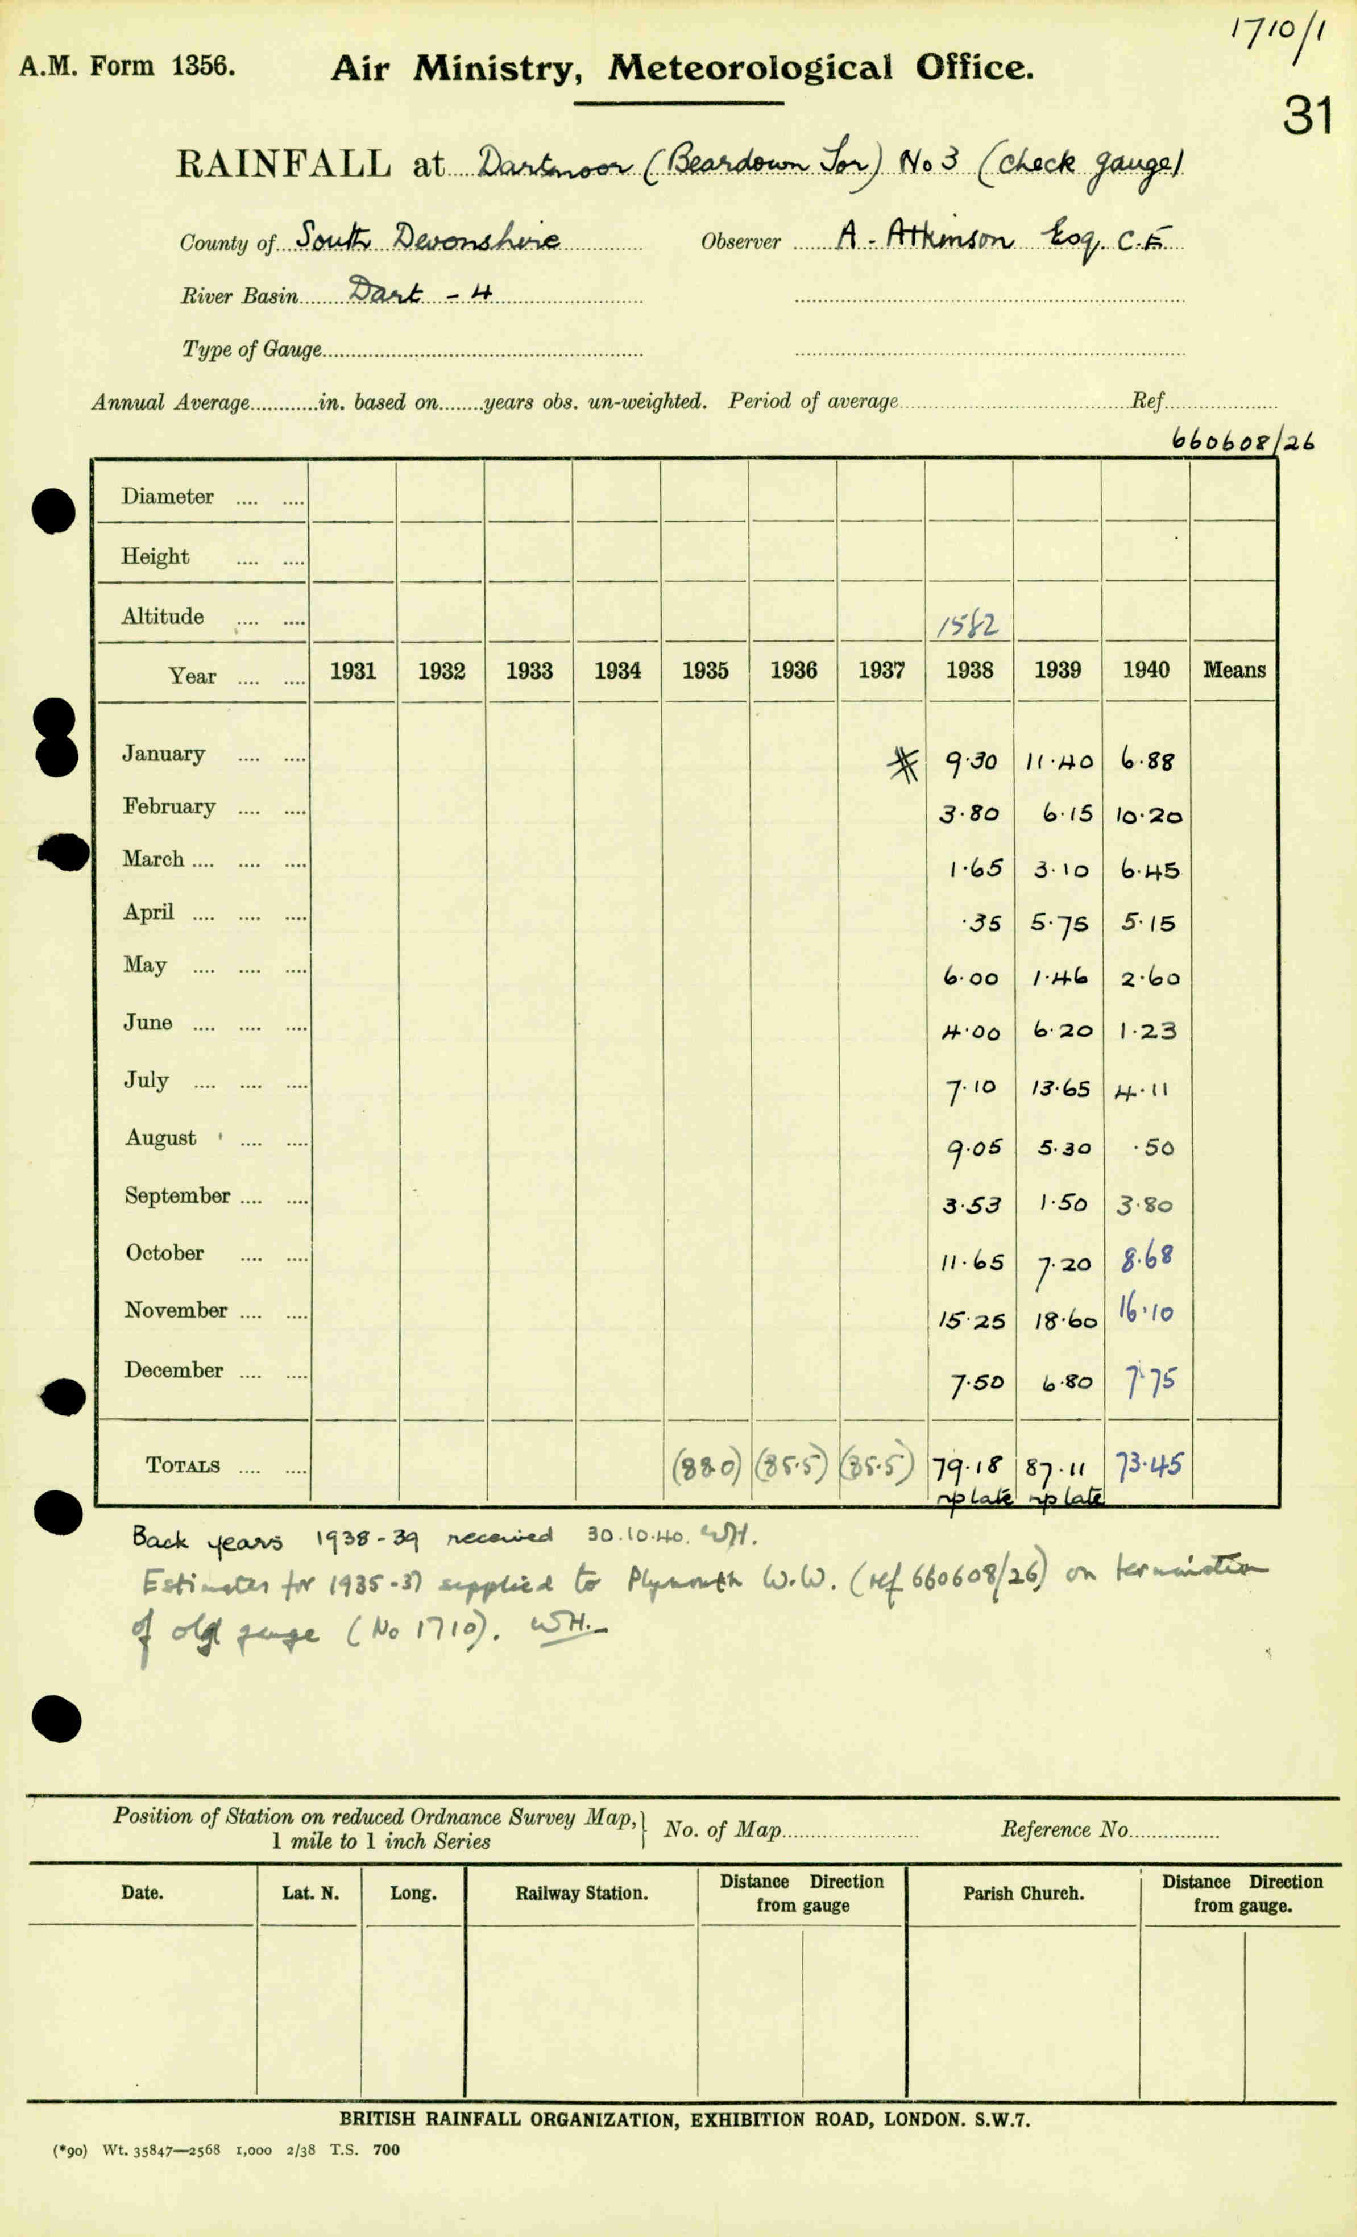 1710/1
A.M. Form 1356. Air Ministry, Meteorological Office.
31
RAINFALL at Dartmoor (Beardown Tor) No 3 (check gauge)
County of South Devonshire Observer A. Atkinson Esq. C.E.
River Basin Dart - 4
Type of Gauge
Annual Average in. based on years obs. un-weighted. Period of average Ref
660608/26
Diameter
Height
Altitude 1582
Year 1931 1932 1933 1934 1935 1936 1937 1938 1939 1940 Means
January 9.30 11.40 6.88
February 3.80 6.15 10.20
March 1.65 3.10 6.45
April .35 5.75 5.15
May 6.00 1.46 2.60
June 4.00 6.20 1.23
July 7.10 13.65 4.11
August 9.05 5.30 .50
September 3.53 1.50 3.80
October 11.65 7.20 8.68
November 15.25 18.60 16.10
December 7.50 6.80 7.75
TOTALS (88.0) (85.5) (85.5) 79.18 87.11 73.45
late late
Back years 1938-39 received 30.10.40. WH.
Estimates for 1935-37 supplied to Plymouth W.W. (ref 660608/26) on termination
of old gauge (No 1710). WH.
Position of Station on reduced Ordnance Survey Map, 1 mile to 1 inch Series No. of Map Reference No.
Date. Lat. N. Long. Railway Station. Distance Direction from gauge Parish Church. Distance Direction from gauge.
BRITISH RAINFALL ORGANIZATION, EXHIBITION ROAD, LONDON. S.W.7.
(*90) Wt. 35847—2568 1,000 2/38 T.S. 700